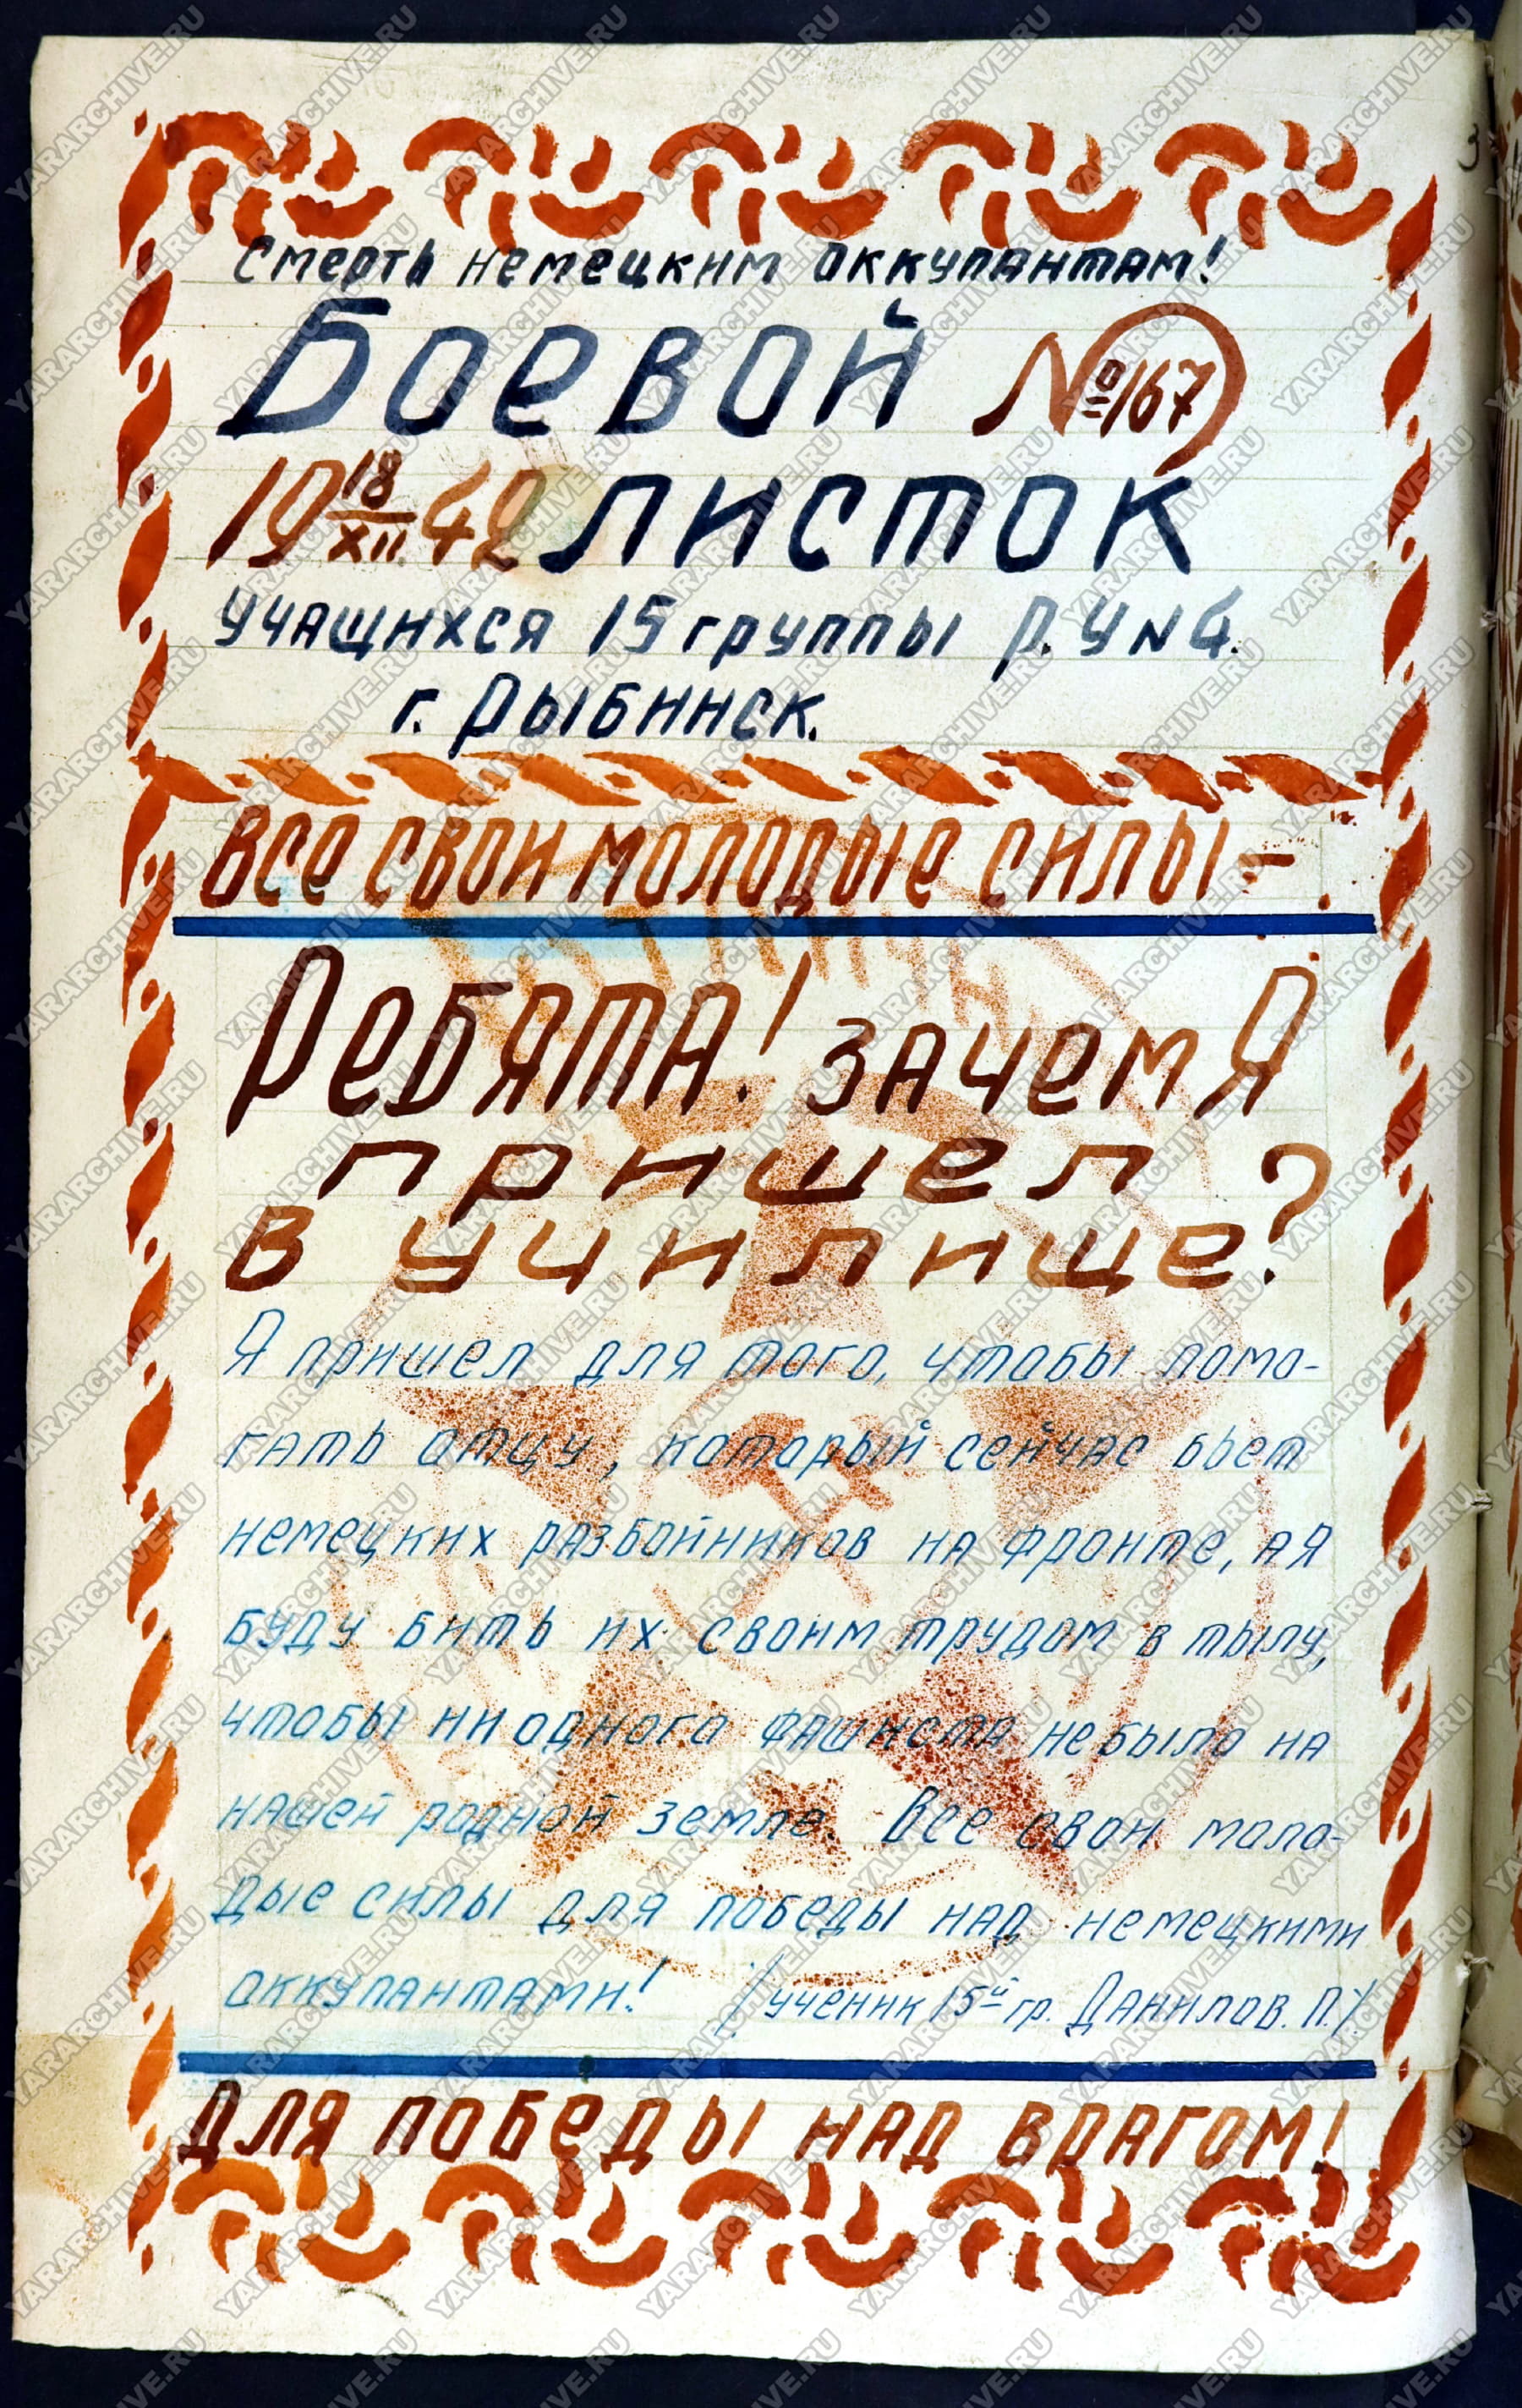 Смерть немецким оккупантам!
Боевой №167
19 18/XII 42 листок
учащихся 15 группы Р.У N4.
г. Рыбинск.
Все свои молодые силы -
Ребята! зачем Я
пришел
в училище?
Я пришел для того, чтобы помо-
гать отцу, который сейчас бьет
немецких разбойников на фронте, а я
буду бить их своим трудом в тылу,
чтобы ни одного фашиста не было на
нашей родной земле. Все свои моло-
дые силы для победы над немецкими
оккупантами! /ученик 15й гр. Данилов. П./
для победы над врагом!
YARARCHIVE.RU